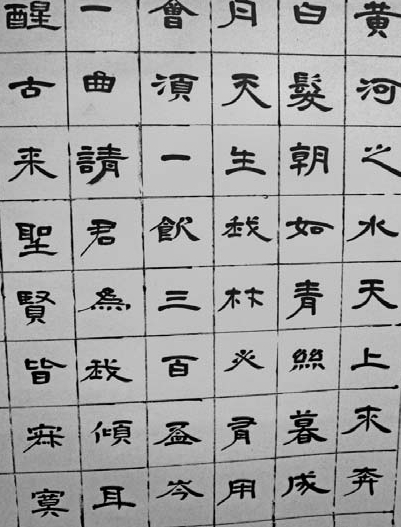 黄河之水天上來奔
白髮朝如青絲暮成
月天生我材必有用
會湏一飲三百盃岑
一曲請君為我傾耳
醒古来聖賢皆寂寞